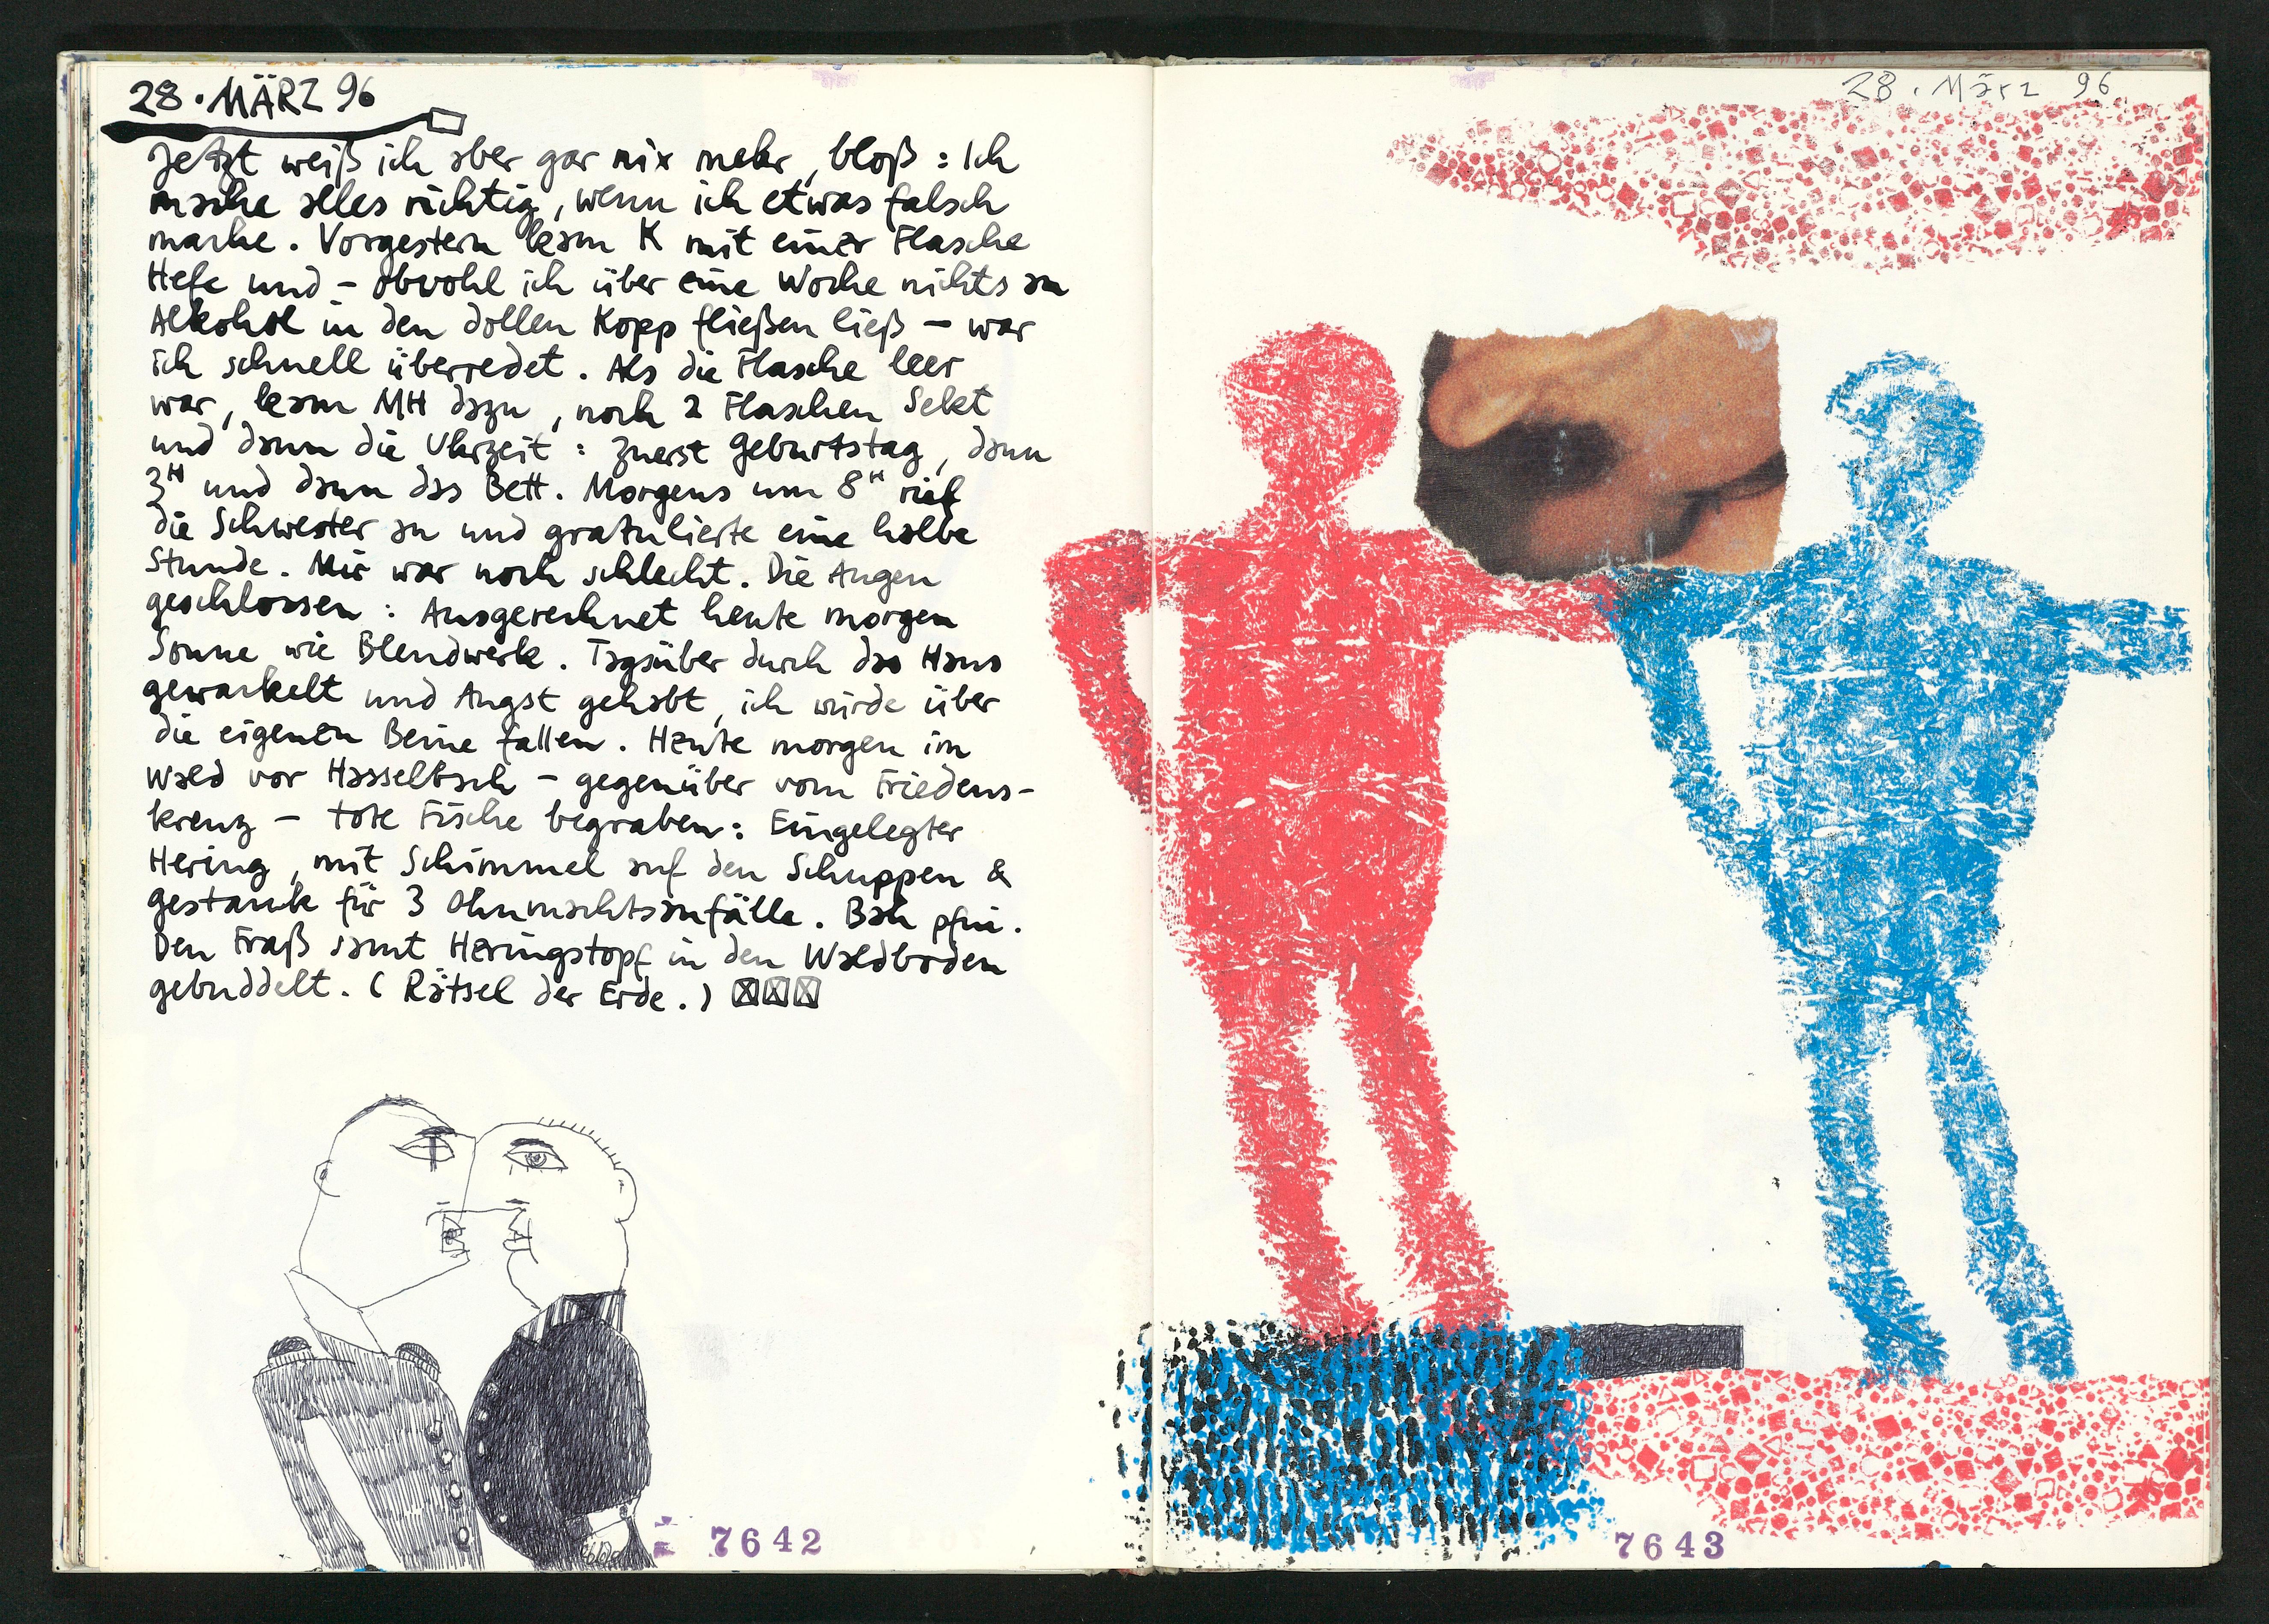 28. MÄRZ 96
Jetzt weiß ich aber gar nix mehr, bloß: Ich
mache alles richtig, wenn ich etwas falsch
mache. Vorgestern kam K mit einer Flasche
Hefe und – obwohl ich über eine Woche nichts an
Alkohol in den dollen Kopp fließen ließ – war
ich schnell überredet. Als die Flasche leer
war, kam MH dazu, noch 2 Flaschen Sekt
und dann die Uhrzeit: Zuerst Geburtstag, dann
3H und dann das Bett. Morgens um 8H rief
die Schwester an und gratulierte eine halbe
Stunde. Mir war noch schlecht. Die Augen
geschlossen: Ausgerechnet heute morgen
Sonne wie Blendwerk. Tagsüber durch das Haus
gewackelt und Angst gehabt, ich würde über
die eigenen Beine fallen. Heute morgen im
Wald vor Hasselbach – gegenüber vom Friedens-
kreuz – tote Fische begraben: Eingelegter
Hering, mit Schimmel auf den Schuppen &
Gestank für 3 Ohnmachtsanfälle. Bah pfui.
Den Fraß samt Heringstopf in den Waldboden
gebuddelt. (Rätsel der Erde.)
7642
28. März 96
7643